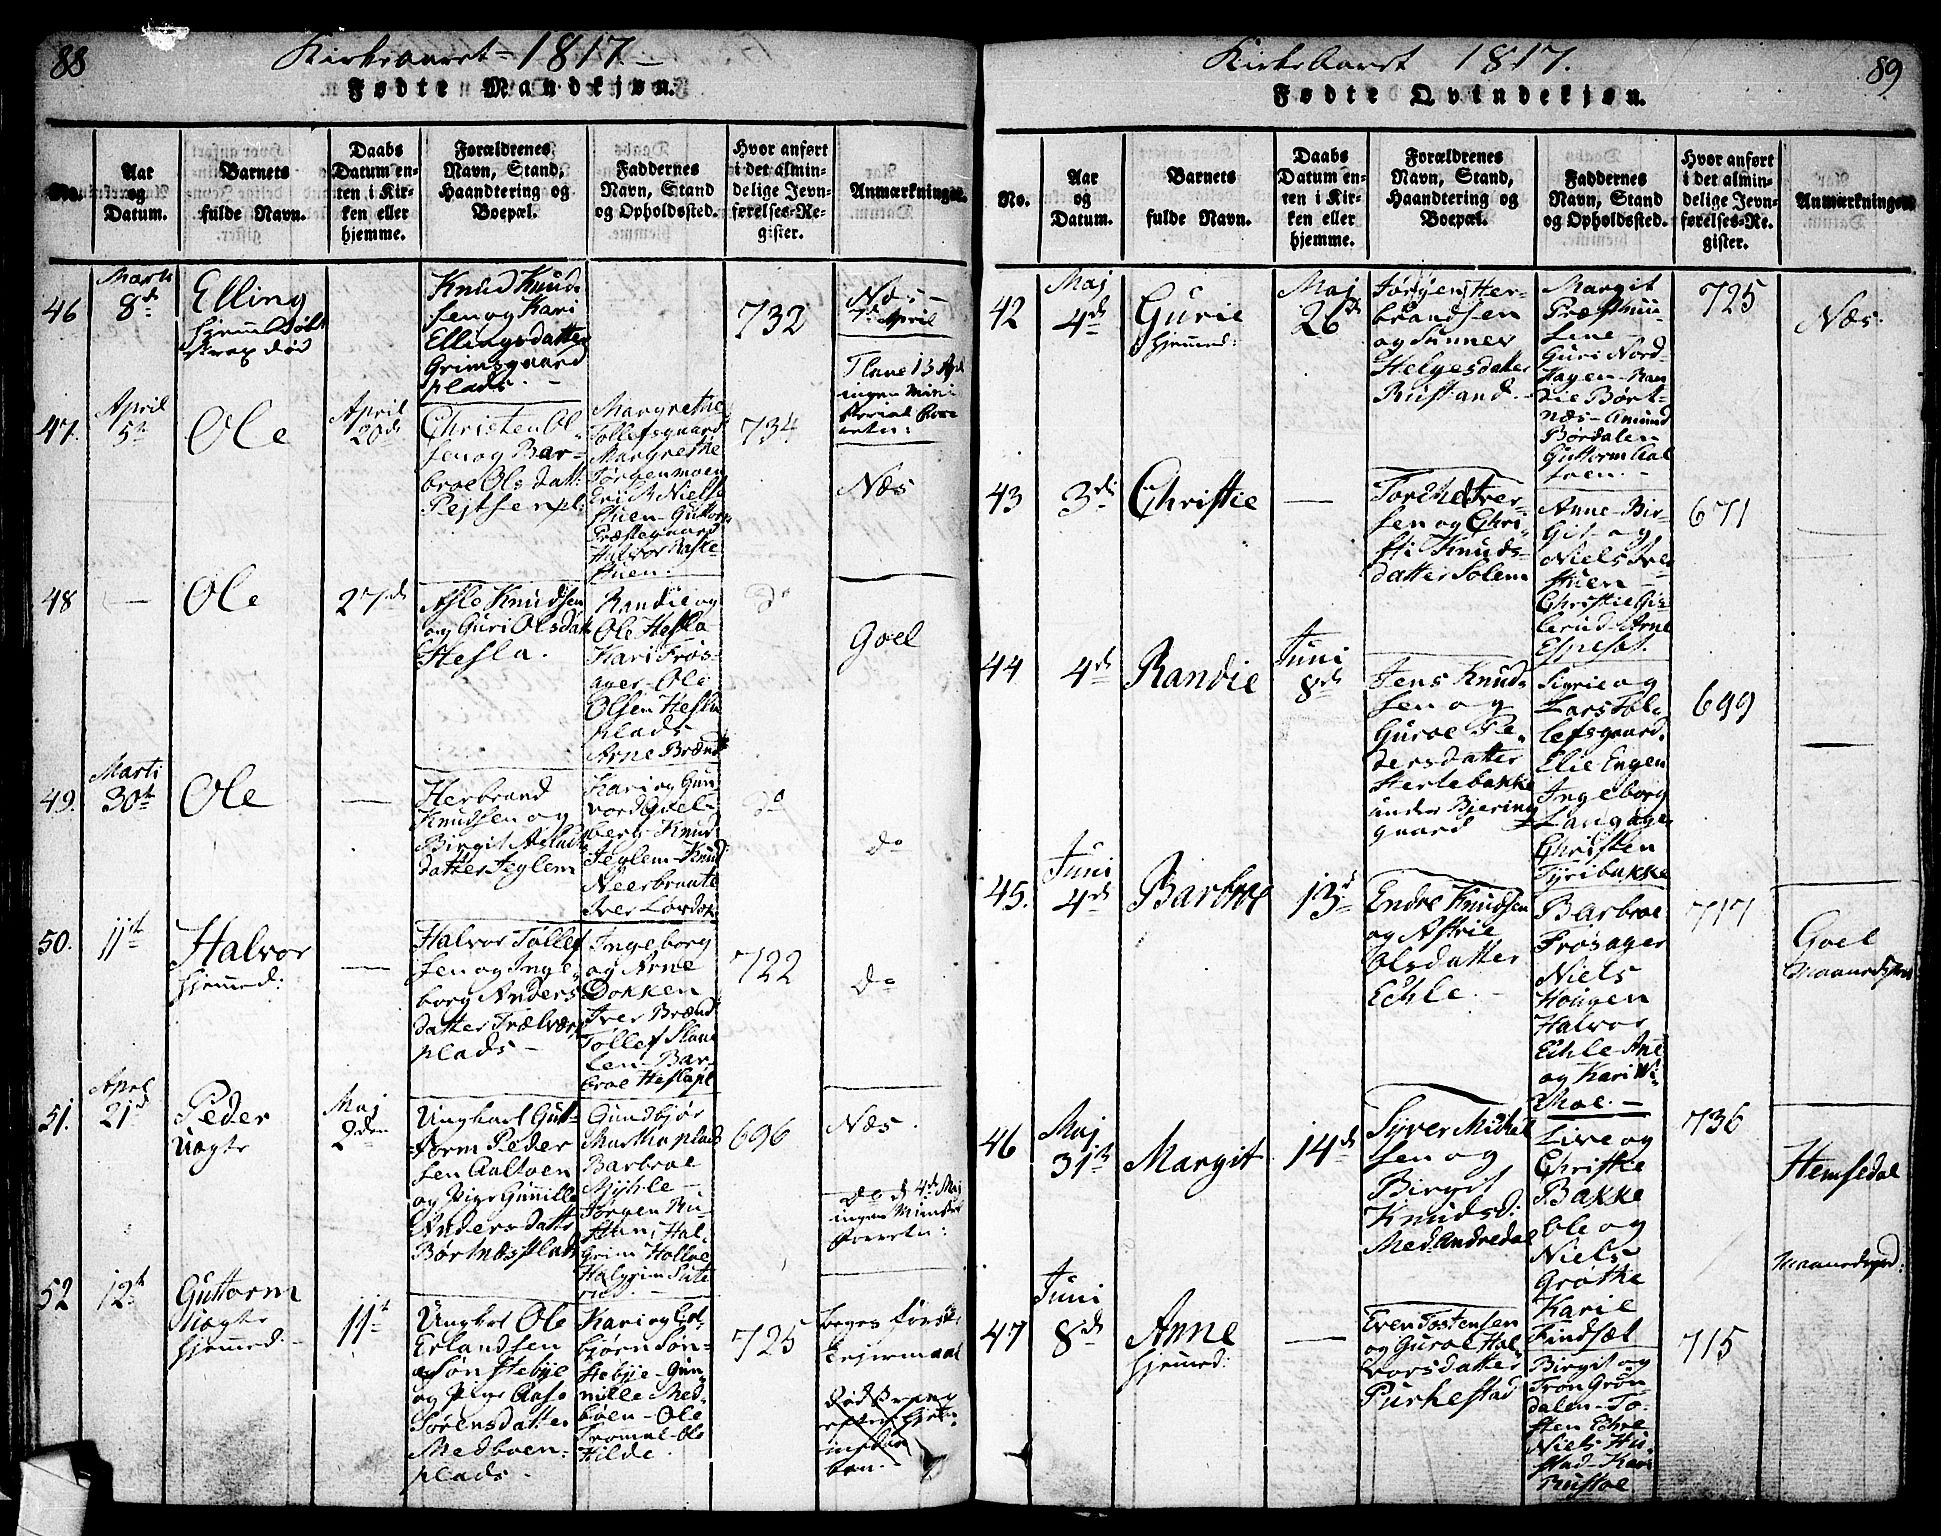 88
Kirkeaaret - 1817 -
Fødte Mandkjøn.
No.
Aar
og
Datum.
Barnets
fulde Navn.
Daabs
Datum en-
ten i Kir-
ken eller
hjemme.
Forældrenes
Navn, Stand,
Haandtering og
Boepæl.
Faddernes
Navn, Stand
og Opholdssted.
Hvor anført
i det almin-
delige Jevn-
førelses-Re-
gister.
Anmærkninger.
46
Marti
8de
Elling
hjemmedøbt
strax død
Knud Knud-
sen og Kari
Ellingsdatter
Grimsgaard
plads. -
732
Næs -
4de April
Tlave 13 Apr
ingen Mini-
sterial For-
retn:
47.
April
5te
Ole
April
20de
Christen Ol-
sen og Bar-
broe Olsdatt:
Pejtsenpl:
Margrethe
Tollefsgaard
Margrethe
Jørgenmoen
Eri & Niels
stuen - Guttorm
Præstegaard
Halvor Raste
stuen.
734
Næs
48
-
Ole
27de
Asle Knudsen
og Guri Olsdatt
Hesla.
Randie og
Ole Hesla
Kari Frøs-
ager - Ole
Olsen Hesla
plads
Arne Brænd
do
Goel
49.
Marti
30te
Ole
-
Herbrand
Knudsen og
Birgit Aslaks
datter Jeglem
Kari og Gun
vord Goel-
berg - Knud
Jeglem - Knud
Neerbraate
Iver Lørdøk
do
do
50.
11te
Halvor
hjemmed:
-
Halvor Tollef
sen og Inge-
borg Anders
datter Trælværk
plads -
Ingeborg
og Arne
Dokken
Iver Brænd
Tollef Slaae
len - Bar-
broe Heslapl
722
do
51.
April
21de
Peder
Uægte
Maj
2den
Ungkarl Gutt-
orm Peder
sen Aaltoen
og Pige Gunille
Anders datter
Børtnæsplads
Gundbjør
Marthaplads
Barbroe
Myhle -
Jørgen Ru-
sten, Hal-
grim Hallae
Halgrim Sute
rud. -
696
Næs.
do d. 4de Maj
ingen Minister
Forretn:
52
12te
Guttorm
Uægte
hjemmed: -
11te
Ungkarl Ole
Erlandsen
Sønstebye
og Pige Aase
Sørensdatter
Medboen-
plads.
Kari og Est-
bjørn Søn-
stebye - Gun-
nille Med-
boen - Ole
Tromal - Ole
Hilde.
725
beges første
Lejermaal
død strax
efter hjem-
medaa
ben. -
Kirkeaaret 1817.
89
Fødte Qvindekjøn.
No.
Aar
og
Datum.
Barnets
fulde Navn.
Daabs
Datum en-
ten i Kir-
ken eller
hjemme.
Forældrenes
Navn, Stand,
Haandtering og
Boepæl.
Faddernes
Navn, Stand
og Opholdssted.
Hvor anført
i det almin-
delige Jevn-
førelses-Re-
gister.
Anmærkninger.
42
Maj
4de
Gurie
hjemmed:
Maj
26de
Jørgen Her-
brandsen
og Sunner
Helgesdatter
Rustand. -
Margit
Præsthuu-
sene
Guri Nord-
Hagen - Ran
die Børt-
næs - Amund
Børdalen
Guttorm Aal
toen. -
725
Næs.
43
3de
Christie
-
Torchel Iver-
sen og Chri-
sti Knuds-
datter Solem
Anne - Bir-
git og
Niels Ive
stuen -
Christie Gis-
lerud - Arne
Espeset.
671
44
4de
Randie
Juni
8de
Jens Knud-
sen og
Guroe Pe-
dersdatter
Herlebakke
under Bjering
gaard
Sigrie og
Lars Tol-
lefsgaard.
Elie Engen
Ingeborg
Langager
Christen
Tyribakke
699
-
45.
Juni
4de
Barbroe
13de
Endre Knudsen
og Astrie
Olsdatter
Echle. -
Barbroe
Frøsager
Niels
Hougen
Halvor
Echle - Ane
og Kari Wi-
Moe. -
717
Goel
Maanedspræd
46
Maj
31te
Margit
14de
Syver Michel
sen og
Birgit
Knudsd:
Medandredal
Live og
Christie
Bakke
Ole og
Niels
Grøthe
Karie
Findsæt
736
Hemsedal
Maanedspræd:
47
Juni
8de
Anne
hjemmed:
-
Even Tostensen
og Guroe Hal-
vorsdatter
Purkestad
Birgit og
Tron Grøn-
dalen - To-
sten Echre
Niels Hu-
stad - Kari
Rustoe
715